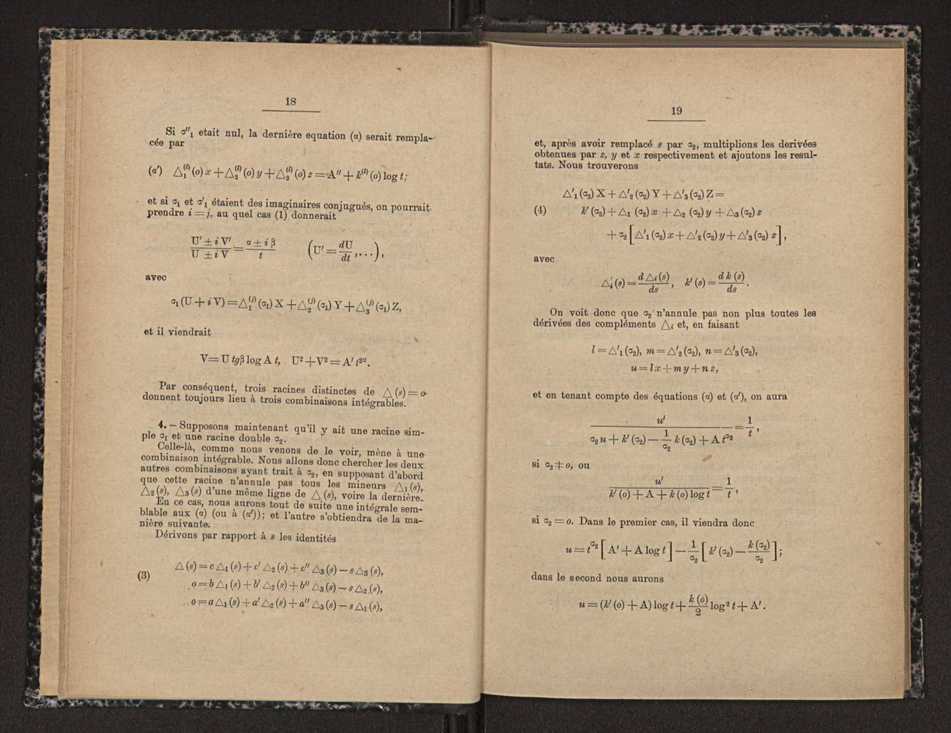 18
Si σ″₁ etait nul, la dernière equation (α) serait rempla-
cée par
(α′) △₁⁽ⁱ⁾(o) x + △₂⁽ⁱ⁾(o) y + △₃⁽ⁱ⁾(o) z = A″ + k⁽ⁱ⁾(o) log t;
et si σ₁ et σ′₁ étaient des imaginaires conjugués, on pourrait
prendre i = j, au quel cas (1) donnerait
(U′ ± i V′)/(U ± i V) = (α ± i β)/t (U′ = dU/dt, . . .),
avec
σ₁ (U + i V) = △₁⁽ʲ⁾(σ₁) X + △₂⁽ʲ⁾(σ₁) Y + △₃⁽ʲ⁾(σ₁) Z,
et il viendrait
V = U tgβ log A t, U² + V² = A′ t²ᵅ.
Par conséquent, trois racines distinctes de △(s) = o
donnent toujours lieu à trois combinaisons intégrables.
4. — Supposons maintenant qu'il y ait une racine sim-
ple σ₁ et une racine double σ₂.
Celle-là, comme nous venons de le voir, mène à une
combinaison intégrable. Nous allons donc chercher les deux
autres combinaisons ayant trait à σ₂, en supposant d'abord
que cette racine n'annule pas tous les mineurs △₁(s),
△₂(s), △₃(s) d'une même ligne de △(s), voire la dernière.
En ce cas, nous aurons tout de suite une intégrale sem-
blable aux (α) (ou à (α′)); et l'autre s'obtiendra de la ma-
nière suivante.
Dérivons par rapport à s les identités
△(s) = c △₁(s) + c′ △₂(s) + c″ △₃(s) — s △₃(s),
(3) o = b △₁(s) + b′ △₂(s) + b″ △₃(s) — s △₂(s),
o = a △₁(s) + a′ △₂(s) + a″ △₃(s) — s △₁(s),
19
et, après avoir remplacé s par σ₂, multiplions les derivées
obtenues par z, y et x respectivement et ajoutons les resul-
tats. Nous trouverons
△′₁(σ₂) X + △′₂(σ₂) Y + △′₃(σ₂) Z =
(4) k′(σ₂) + △₁(σ₂) x + △₂(σ₂) y + △₃(σ₂) z
+ σ₂ [△′₁(σ₂) x + △′₂(σ₂) y + △′₃(σ₂) z],
avec
△′ᵢ(s) = d △ᵢ(s)/ds, k′(s) = d k(s)/ds.
On voit donc que σ₂ n'annule pas non plus toutes les
dérivées des compléments △ᵢ et, en faisant
l = △′₁(σ₂), m = △′₂(σ₂), n = △′₃(σ₂),
u = l x + m y + n z,
et en tenant compte des équations (α) et (α′), on aura
u′/(σ₂ u + k′(σ₂) — (1/σ₂) k(σ₂) + A t^σ₂) = 1/t,
si σ₂ ≠ o, ou
u′/(k′(o) + A + k(o) log t) = 1/t,
si σ₂ = o. Dans le premier cas, il viendra donc
u = t^σ₂ [A′ + A log t] — (1/σ₂) [k′(σ₂) — k(σ₂)/σ₂];
dans le second nous aurons
u = (k′(o) + A) log t + (k(o)/2) log² t + A′.